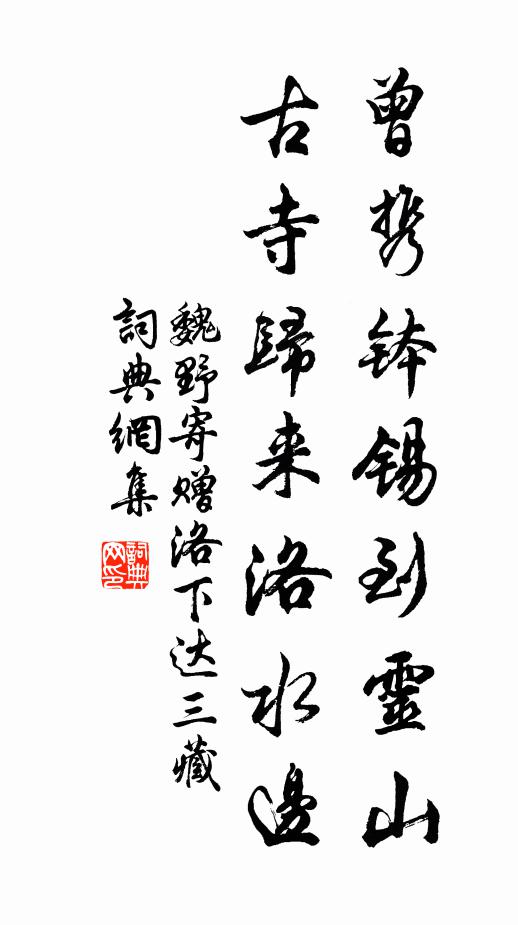 曾携钵锡到靈山
古寺歸来洛水邊
魏野寄赠洛下达三藏
詞典網集
詞典
网印